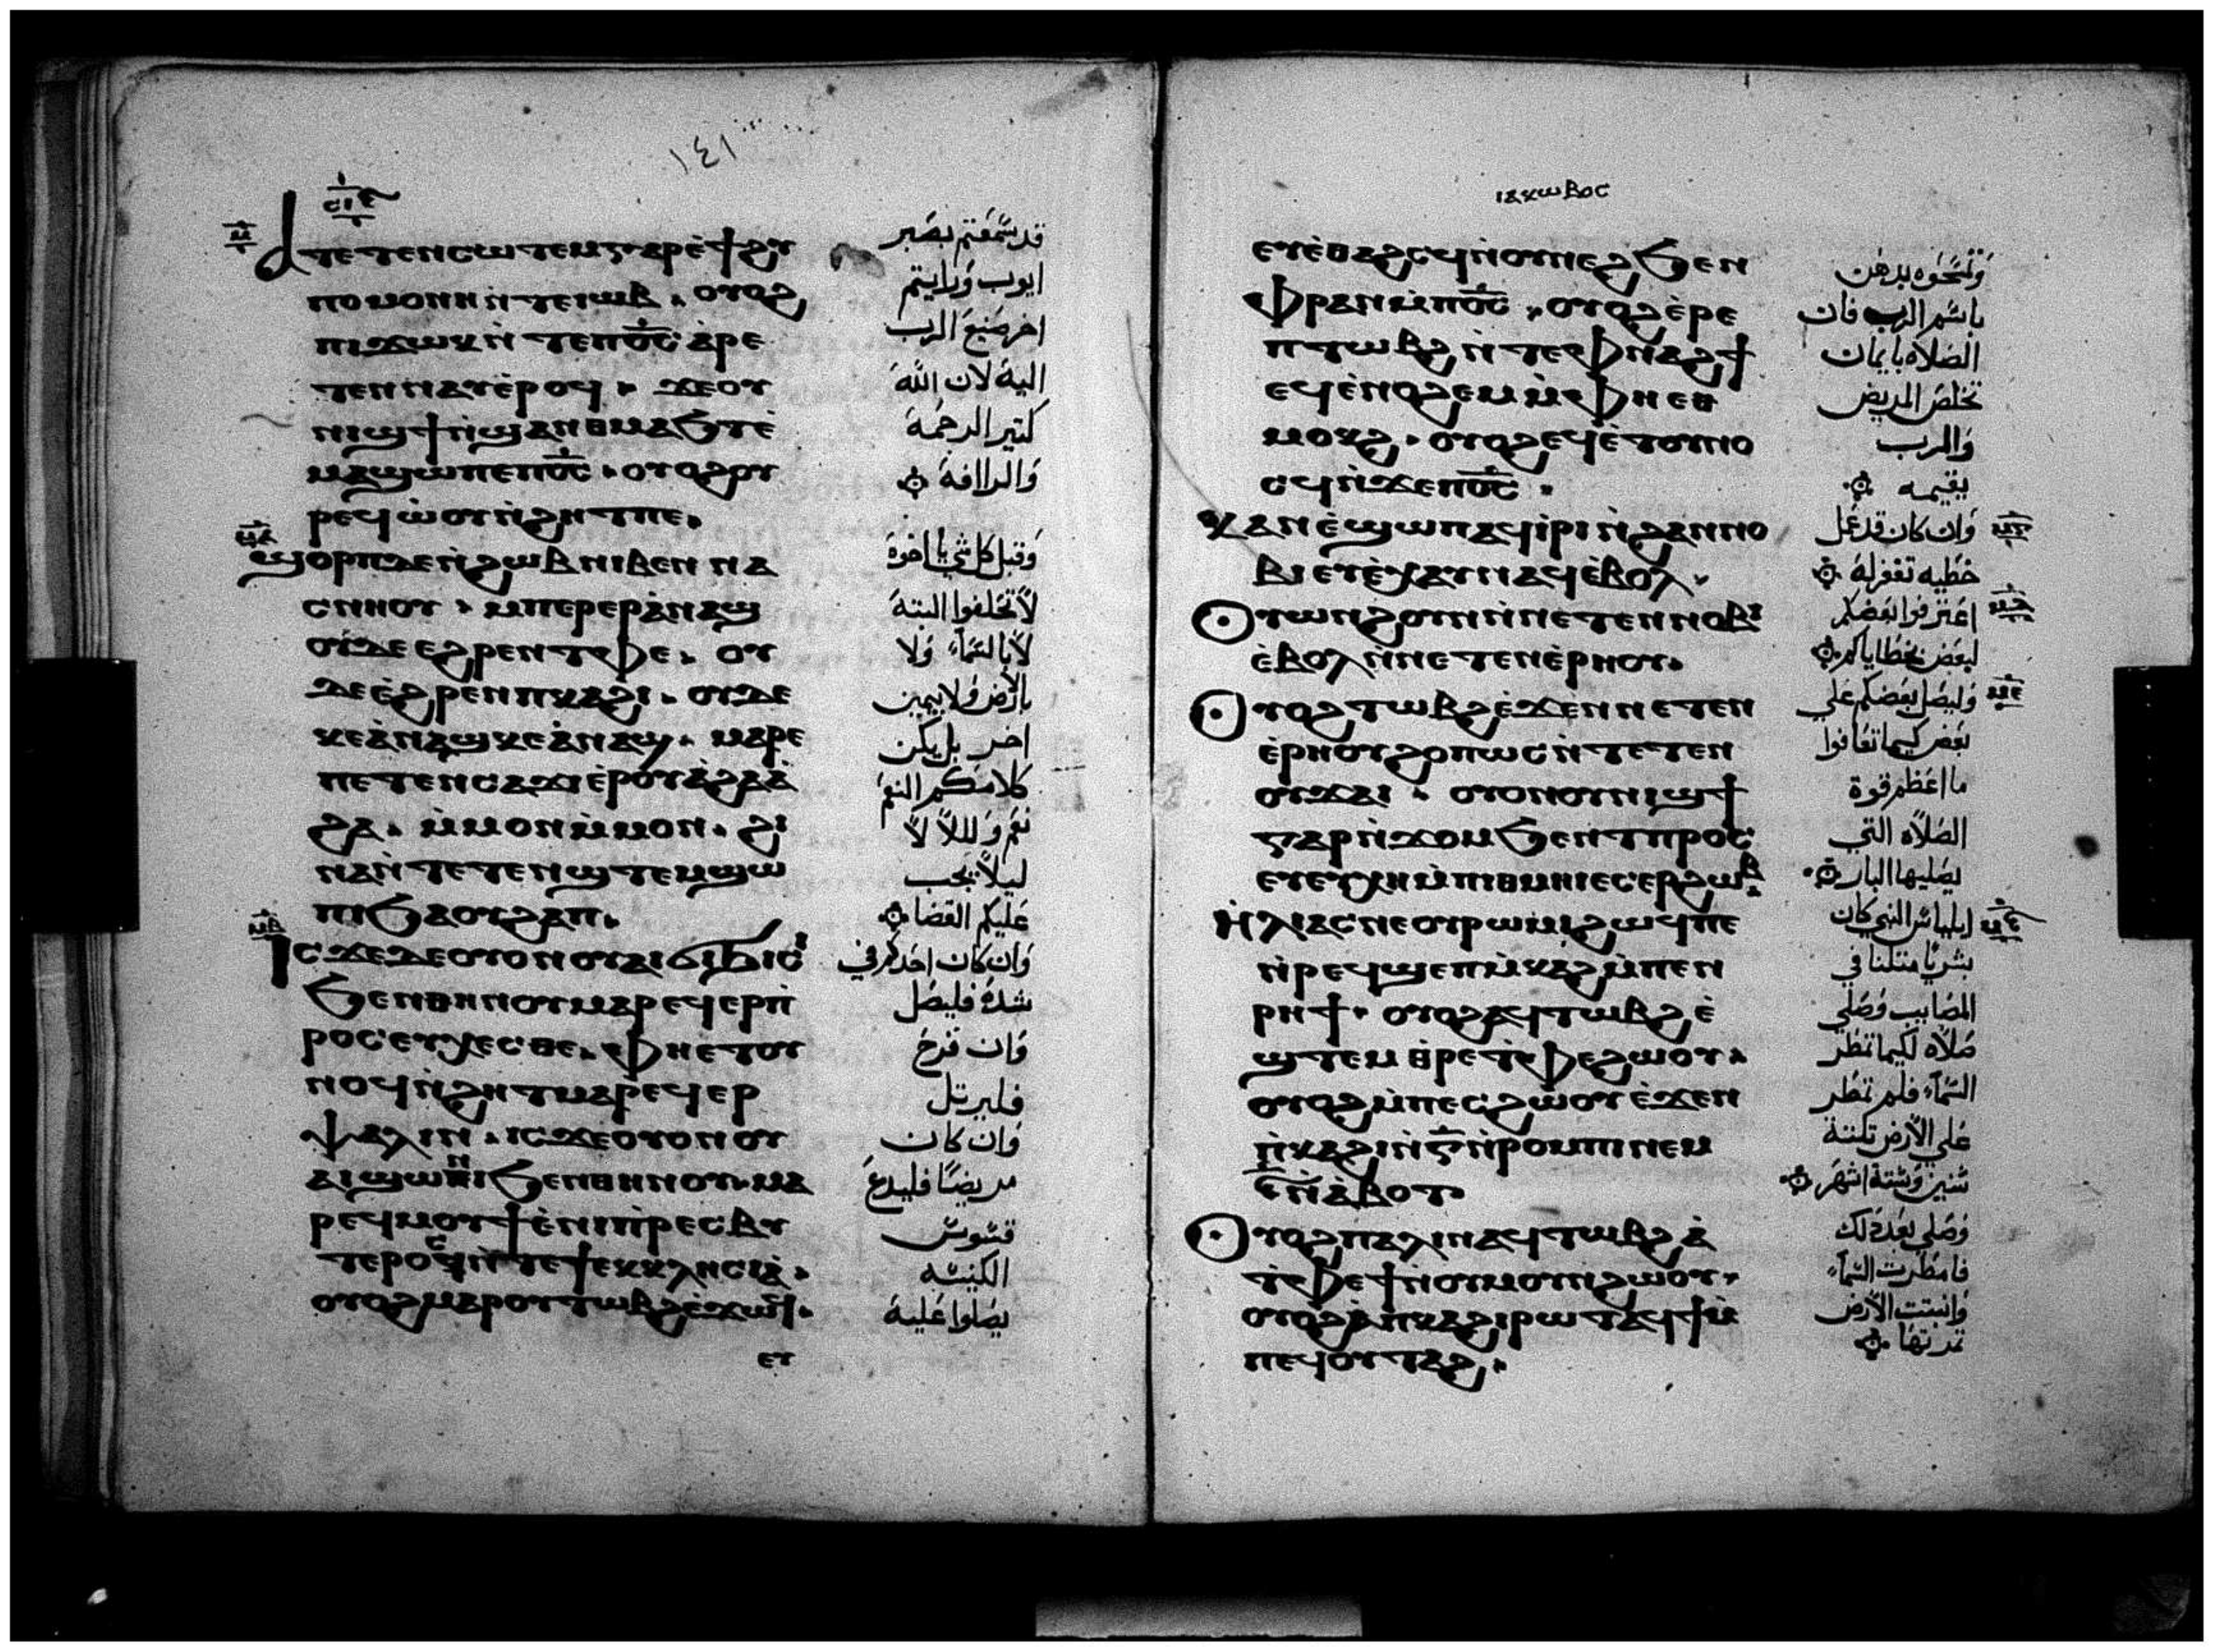 ١٤١
ⲁⲧⲉⲧⲉⲛⲥⲱⲧⲉⲙⲅⲁⲣⲉ̀ϯϩⲩ
ⲡⲟⲙⲟⲛⲏⲛ̀ⲧⲉⲓⲱⲃ. ⲟⲩⲟϩ
ⲡⲓϫⲱⲕⲛ̀ⲧⲉⲡⲟ̅ⲥ̅ ⲁ̀ⲣⲉ
ⲧⲉⲛⲛⲁⲩⲉ̀ⲣⲟϥ. ϫⲉⲟⲩ
ⲛⲓϣϯⲛ̀ϣⲁⲛⲑⲙⲁϧⲧⲉ̀
ⲙⲁϣⲱⲡⲉⲡⲟ̅ⲥ̅. ⲟⲩⲟϩⲟⲩ
ⲣⲉϥⲱ̀ⲟⲩⲛ̀ϩⲏⲧⲡⲉ.
ϣⲟⲣⲡⲇⲉⲛ̀ϩⲱⲃⲛⲓⲃⲉⲛ ⲛⲁ
ⲥⲛⲏⲟⲩ. ⲙⲡⲉⲣⲉⲣⲁ̀ⲛⲁϣ
ⲟⲩⲇⲉ ⲉϩⲣⲉⲛⲧⲫⲉ. ⲟⲩ
ⲇⲉⲉ̀ϩⲣⲉⲛⲡⲕⲁϩⲓ. ⲟⲩⲇⲉ
ⲕⲉⲁ̀ⲛⲁϣⲕⲉⲁ̀ⲛⲁϣ. ⲙⲁⲣⲉ
ⲡⲉⲧⲉⲛⲥⲁϫⲓⲉ̀ⲣⲟⲩⲁ̀ϩⲁⲁ̀
ϩⲁ. ⲙ̀ⲙⲟⲛⲙ̀ⲙⲟⲛ. ϩⲓ
ⲛⲁⲛ̀ⲧⲉⲧⲉⲛϣⲧⲉⲙϣⲱ
ⲡⲓϧⲁⲟⲩϩⲁⲡ.
ⲓⲥϫⲉⲇⲉⲟⲩⲟⲛⲟⲩⲁⲓϭⲓϧⲓⲥⲓ
ϧⲉⲛⲑⲏⲛⲟⲩⲙⲁⲣⲉϥⲉⲣⲡ̀
ⲣⲟⲥⲉⲩⲭⲉⲥⲑⲉ. ⲫⲏⲉ̀ⲧⲟⲩ
ⲛⲟϥⲛ̀ϩⲏⲧⲙⲁⲣⲉϥⲉⲣ
ⲯⲁⲗⲓⲛ. ⲓⲥϫⲉⲟⲩⲟⲛⲟⲩ
ⲁⲓϣⲱⲛⲓϧⲉⲛⲑⲏⲛⲟⲩ.ⲙⲁ
ⲣⲉϥⲙⲟⲩϯⲉ̀ⲛⲓⲡ̀ⲣⲉⲥⲃⲩ
ⲧⲉⲣⲟⲥⲛ̀ⲧⲉϯⲉⲕⲕⲗⲏⲥⲓⲁ̀.
ⲟⲩⲟϩⲙⲁⲣⲟⲩⲧⲱⲃϩⲉ̀ϫⲱϥ.
ⲉⲩ
قد سمعتم بصبر
ايوب ورايتم
اخر صنيع الرب
اليه لان الله
كتير الرحمة
والراافة
وقبل كل شي يا اخوة
لا تحلفوا البتة
لا بالسماء ولا
بالارض ولا بيمين
اخر بل يكن
كلامكم النعم
نعم وللا لا
ليلا يجب
عليكم القضا
وان كان احدكم في
شدة فليصل
وان فرح
فليرتل
وان كان
مريضا فليدع
قسوس
الكنيسه
يصلوا عليه
ⲓⲁⲕⲱⲃⲟⲥ
ⲉⲩⲉ̀ⲑⲁϩⲥϥⲛ̀ⲟⲩⲛⲉϩϧⲉⲛ
ⲫⲣⲁⲛⲙ̀ⲡⲟ̅ⲥ̅. ⲟⲩⲟϩⲉ̀ⲣⲉ
ⲡⲧⲱⲃϩⲛ̀ⲧⲉⲫⲛⲁϩϯ
ⲉϥⲉ̀ⲛⲟϩⲉⲙⲙ̀ⲫⲏⲉⲑ
ⲙⲟⲕϩ. ⲟⲩⲟϩⲉϥⲉ̀ⲧⲟⲩⲛⲟ
ⲥϥⲛ̀ϫⲉⲡⲟ̅ⲥ̅.
ⲕⲁⲛⲉ̀ϣⲱⲡⲁϥⲓ̀ⲣⲓⲛ̀ϩⲁⲛⲛⲟ
ⲃⲓⲉⲩⲉ̀ⲭⲁⲩⲛⲁϥⲉ̀ⲃⲟⲗ.
ⲟⲩⲱⲛϩⲟⲩⲛⲛ̀ⲛⲉⲧⲉⲛⲛⲟⲃⲓ
ⲉ̀ⲃⲟⲗⲛ̀ⲛⲉⲧⲉⲛⲉ̀ⲣⲏⲟⲩ.
ⲟⲩⲟϩⲧⲱⲃϩⲉ̀ϫⲉⲛⲛⲉⲧⲉⲛ
ⲉ̀ⲣⲏⲟⲩϩⲟⲡⲱⲥⲛ̀ⲧⲉⲧⲉⲛ
ⲟⲩϫⲁⲓ. ⲟⲩⲟⲛⲟⲩⲛⲓϣϯ
ⲅⲁⲣⲛ̀ϫⲟⲙϧⲉⲛⲧⲡⲣⲟⲥ
ⲉⲩⲉⲩⲭⲏⲙ̀ⲡⲓⲑⲙⲏⲓⲉⲥⲉⲣϩⲱⲃ
ⲏ̀ⲗⲓⲁⲥⲛⲉⲟⲩⲣⲱⲙⲓϩⲱϥⲡⲉ
ⲛ̀ⲣⲉϥϣⲉⲡⲙ̀ⲕⲁϩⲙ̀ⲡⲉⲛ
ⲣⲏϯ. ⲟⲩⲟϩⲁϥⲧⲱⲃϩⲉ̀
ϣⲧⲉⲙⲑ̀ⲣⲉⲧ̀ⲫⲉϩⲱⲟⲩ.
ⲟⲩⲟϩⲙ̀ⲡⲉⲥϩⲱⲟⲩⲉ̀ϫⲉⲛ
ⲡ̀ⲕⲁϩⲓⲛ̀ⲅ̅ⲛ̀ⲣⲟⲙⲡⲓⲛⲉⲙ
ⲋ̅ⲛ̀ⲁ̀ⲃⲟⲧ
ⲟⲩⲟϩⲡⲁⲗⲓⲛⲁϥⲧⲱⲃϩⲁ̀
ⲧ̀ⲫⲉϯⲛ̀ⲟⲩⲙⲟⲩⲛϩⲱⲟⲩ.
ⲟⲩⲟϩⲁ̀ⲡⲕⲁϩⲓⲣⲱⲧⲁϥϯⲙ̀
ⲡⲉϥⲟⲩⲧⲁϩ.
وتمسحوه بدهن
باسم الرب فان
الصلاة بايمان
تخلص المريض
والرب
يقيمه
وان كان قد عمل
خطيه تغفر له
اعترفوا بعضكم
لبعض بخطاياكم
وليصل بعضكم على
بعض كيما تعافوا
ما اعظم قوة
الصلاة التي
يصليها البار
ايلياس النبي كان
بشريا متلنا في
المصايب وصلي
صلاة لكيما تمطر
السماء فلم تمطر
علي الارض تلتة
سنين وستة اشهر
وصلي بعد ذلك
فامطرت السماء
وانبتت الارض
تمرتها